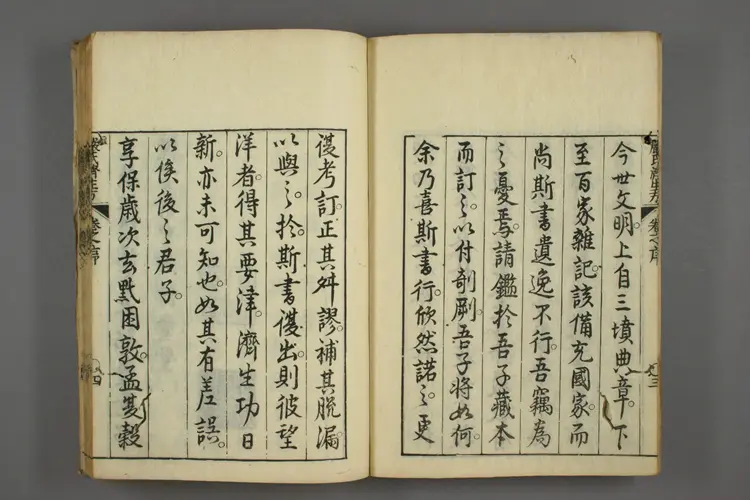 嚴氏濟生方 卷之序 三
今世文明。上自三墳典章。下
至百家雜記。該備充國家。而
尚斯書遺逸不行。吾竊為
之憂焉。請鑑於吾子藏本
而訂之。以付剞劂。吾子將如何
余乃喜斯書行。欣然諾之。更
復考訂。正其舛謬。補其脫漏。
以與之。於斯書復出。則彼望
洋者。得其要津。濟生功日
新。亦未可知也。如其有差誤。
以俟後之君子。
享保歲次玄黓困敦。孟夏穀
嚴氏濟生方 卷之序 四